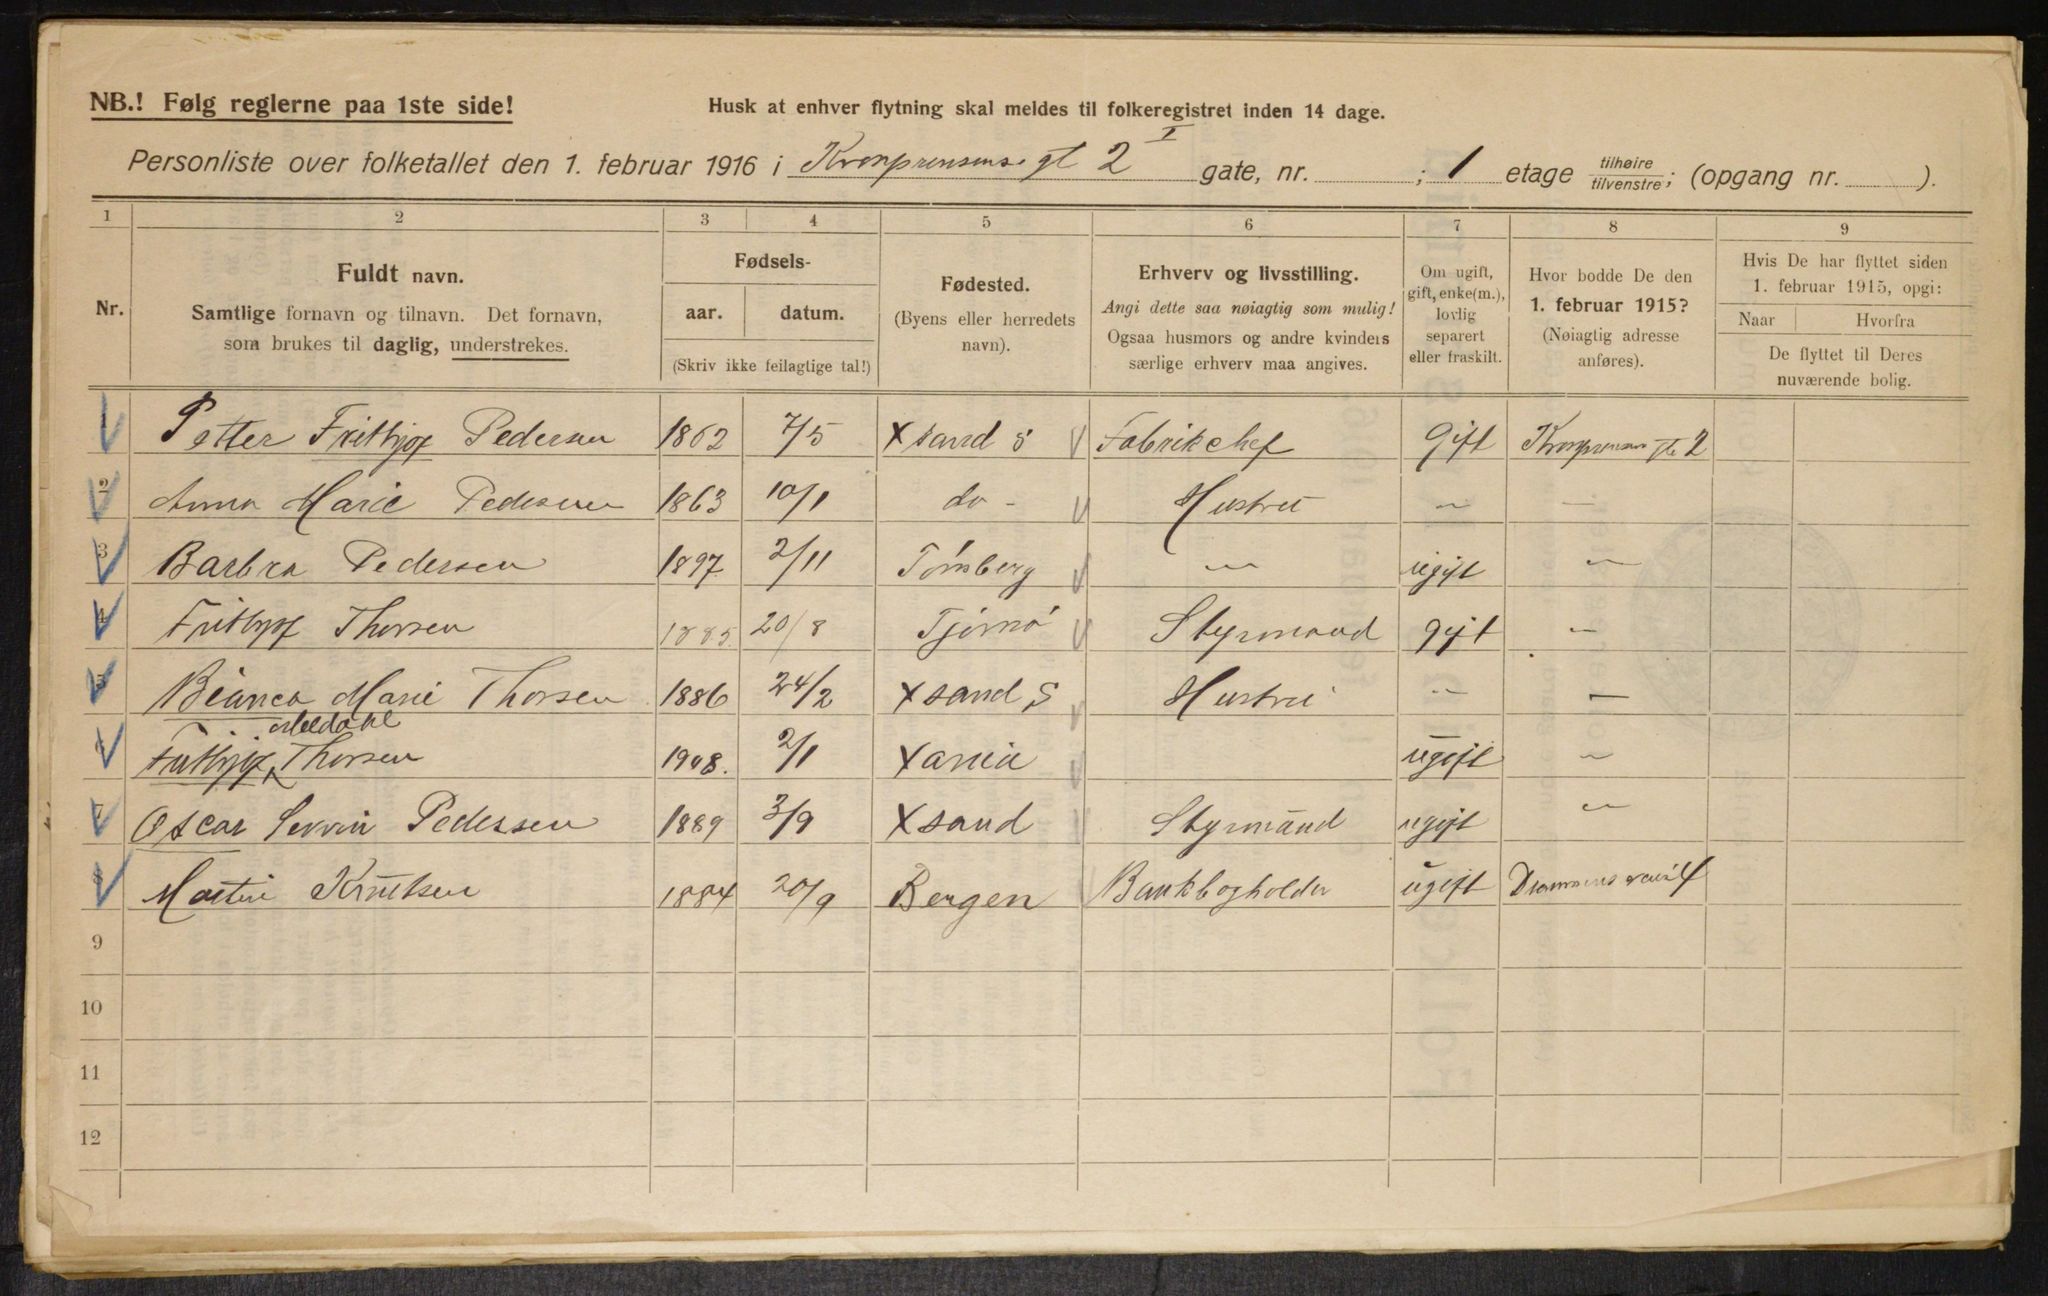 NB.! Følg reglerne paa 1ste side!
Husk at enhver flytning skal meldes til folkeregistret inden 14 dage.
Personliste over folketallet den 1. februar 1916 i Kronprinsens gt 2 I gate, nr. ; 1 etage tilhøire tilvenstre; (opgang nr. ).
1 2 3 4 5 6 7 8 9
Nr.
Fuldt navn.
Samtlige fornavn og tilnavn. Det fornavn,
som brukes til daglig, understrekes.
Fødsels-
aar. datum.
(Skriv ikke feilagtige tal!)
Fødested.
(Byens eller herredets
navn).
Erhverv og livsstilling.
Angi dette saa nøiagtig som mulig!
Ogsaa husmors og andre kvinders
særlige erhverv maa angives.
Om ugift,
gift, enke(m.),
lovlig
separert
eller fraskilt.
Hvor bodde De den
1. februar 1915?
(Nøiagtig adresse
anføres).
Hvis De har flyttet siden
1. februar 1915, opgi:
Naar Hvorfra
De flyttet til Deres
nuværende bolig.
1 Petter Frithjof Pedersen 1862 7/5 Xsand S Fabrikchef gift Kronprinsens gt 2
2 Anna Marie Pedersen 1863 10/1 do - Hustru — —
3 Barbra Pedersen 1897 2/11 Tønsberg — ugift —
4 Frithjof Thorsen 1885 20/8 Tjømø Styrmand gift —
5 Bianca Marie Thorsen 1886 24/2 Xsand S Hustru — —
6 Frithjof Thorsen 1908. 2/1 Xania ugift —
7 Oscar Pedersen 1889 3/9 Xsand Styrmand ugift —
8 Martin Knutsen 1884 20/9 Bergen Bankbogholder ugift
9
10
11
12